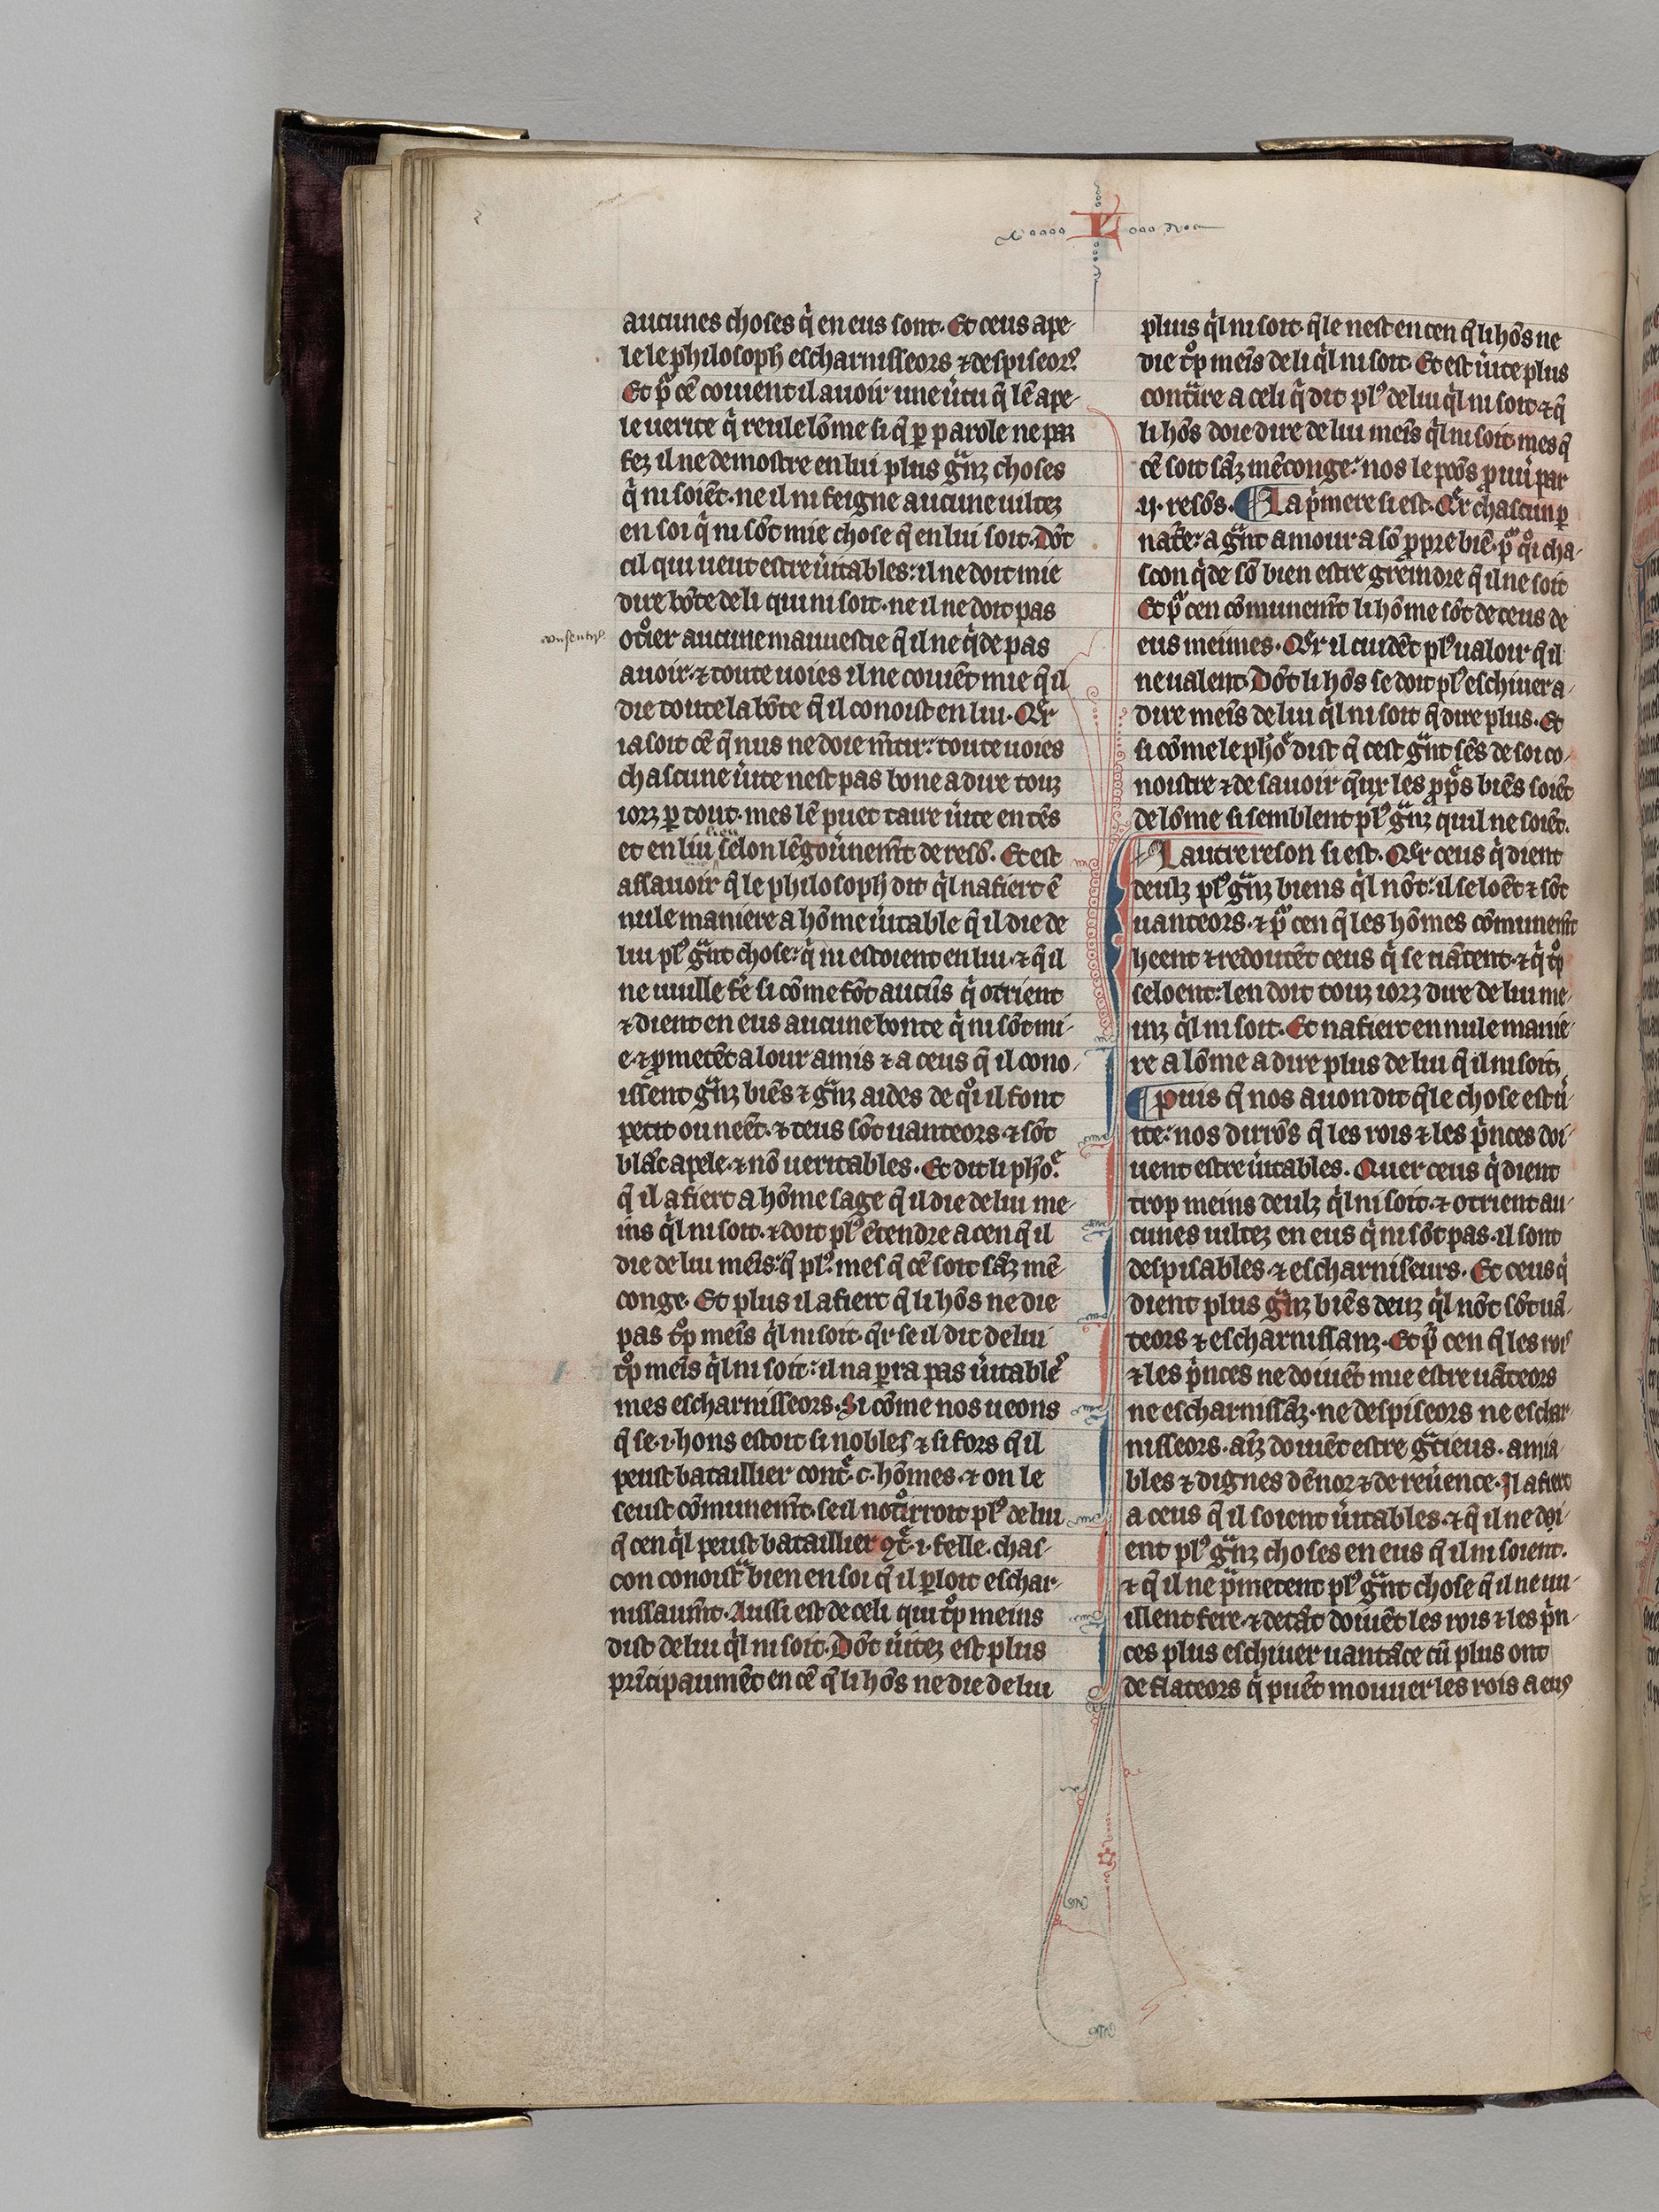 L
aucunes choses q̇ en eus sont. Et ceus ape-
le le philosoph escharnisseors ⁊ despiseors.
Et pᵃ cē couuent il auoir une ùtu q̄ lē ape-
le uerite q̇ reule lōme si q̄ ꝑ parole ne par
fez il ne demostre en lui plus gᵃnz choses
q̇ ni soiēt. ne il ni feigne aucune uiltez
en soi q̇ ni sōt mie chose q̄ en lui soit. Dōt
cil qui ueut estre ùitables: il ne doit mie
dire bōte de li qui ni soit. ne il ne doit pas
otͦier aucune mauuestie q̄ il ne q̇de pas
auoir. ⁊ toute uoies il ne couiēt mie q̄ il
die toute la bōte q̄ il conoist en lui. Qᵃr
ia soit cē q̄ nus ne doie m̄tir: toute uoies
chascune ùite nest pas bone a dire touz
iorz ꝑ tout. mes lē puet taire ùite en tēs
lieu
et en liu selon lēgoùnem̄t de resō. Et est
assauoir q̄ le philosoph dit q̇l nafiert ē
nule maniere a hōme ùitable q̄ il die de
lui plꝰ gᵃnt chose: q̇ ni estoient en lui. ⁊ q̄ il
ne uuille fē si cōme fōt aucūs q̇ otrient
⁊ dient en eus aucune bonte q̇ ni sōt mi-
e. ⁊ ꝓmetēt a lour amis ⁊ a ceus q̄ il cono-
issent gᵃnz biēs ⁊ gᵃnz aides de qͦi il font
petit ou neēt. ⁊ teus sōt uanteors ⁊ sōt
blāc apele. ⁊ nō ueritables. Et dit li phōe.
q̄ il afiert a hōme sage q̄ il die de lui me-
ins q̇l ni soit. ⁊ doit plꝰ ētendre a cen q̄ il
die de lui meīs: q̄ plꝰ. mes q̄ cē soit sāz mē-
conge. Et plus il afiert q̄ li hōs ne die
pas tͦp meīs q̇l ni soit. qᵃr se il dit de lui
tͦp meīs q̇l ni soit: il naꝑra pas ùitable.
mes escharnisseors. Si cōme nos ueons
q̄ se .i. hons estoit si nobles ⁊ si fors q̄ il
peust bataillier contᵉ .c. hōmes. ⁊ on le
seust cōmunem̄t. se il notͦirroit plꝰ de lui
q̄ cen q̇l peust bataillier ꝯtᵉ .i. felle. chas-
con conoistᵃ bien en soi q̄ il ꝑloit eschar-
nissaum̄t. Aussi est de celi qui tͦp meins
dist de lui q̇l ni soit. Dōt ùitez est plus
prīcipaumēt en cē q̄ li hōs ne die de lui
pluis q̇l ni soit. q̄le nest en cen q̄ li hōs ne
die tͦp meīs de li q̇l ni soit. Et est ùite plus
contᵃire a celi q̇ dit plꝰ de lui q̇l ni soit ⁊ q̄
li hōs doie dire de lui meīs q̇l ni soit mes q̄
cē soit sāz mēconge: nos le poōs ꝓuù par
.ij. resōs. La p̍mere si est. Qᵃr chascun ꝑ
natᵉe: a gᵃnt amour a sō ꝓpre biē. pᵃ qͦi cha-
scon q̇de sō bien estre greindre q̄ il ne soit
Et pᵃ cen cōmunem̄t li hōme sōt deceus de
eus meimes. Qᵃr il cuidēt plꝰ ualoir q̄ il
ne ualent. Dōt li hōs se doit plꝰ eschiuer a-
dire meīs de lui q̇l ni soit q̄ dire plus. Et
si cōme le phōe dist q̄ cest gᵃnt sēs de soi co-
noistre ⁊ de sauoir q̄ les ꝓp̄s biēs soiēt
de lōme si semblent plꝰ gᵃnz quil ne soiēt.
Lautre reson si est. Qᵃr ceus q̇ dient
deulz plꝰ gᵃnz biens q̇l nōt: il se loēt ⁊ sōt
uanteors. ⁊ pᵃ cen q̄ les hōmes cōmunem̄t
heent ⁊ redoutēt ceus q̇ se uātent ⁊ q̇ tͦp
se loent: len doit touz iorz dire de lui me-
inz q̇l ni soit. Et nafiert en nule manie-
re a lōme a dire plus de lui q̄ il ni soit.
Puis q̄ nos auon dit q̄le chose est ù-
ite: nos dirrōs q̄ les rois ⁊ les p̍nces doi-
uent estre ùitables. Quer ceus q̇ dient
trop meins deulz q̇l ni soit. ⁊ otrient au-
cunes uiltez en eus q̇ ni sōt pas. il sont
despisables ⁊ escharniseurs. Et ceus q̇
dient plus gᵃnz biēs deuz q̇l nōt sōt uā-
teors ⁊ escharnissanz. Et pᵃ cen q̄ les rois
⁊ les p̍nces ne doiuēt mie estre uāteors
ne escharnissāz. ne despiseors ne eschar-
nisseors. aīz doiuēt estre gᵃtieus. amia-
bles ⁊ dignes dēnor ⁊ de reùence. Il afiert
a ceus q̄ il soient ùitables. ⁊ q̄ il ne doi-
ent plꝰ gᵃnz choses en eus q̄ il ni soient.
⁊ q̄ il ne ꝓmetent plꝰ gᵃnt chose q̄ il ne uu-
illent fere. ⁊ de tāt doiuēt les rois ⁊ les p̍n-
ces plus eschiuer uantāce cū plus ont
de flateors q̇ puēt mouuer les rois a eus